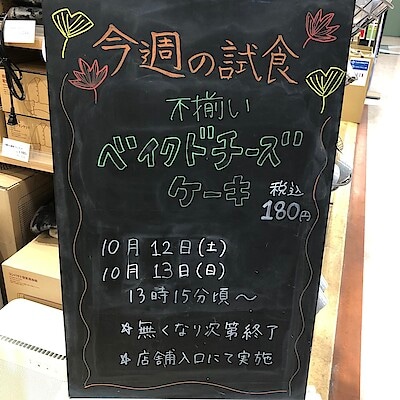 今週の試食
不揃い
ベイクドチーズ
ケーキ 税込
180円
10月12日(土)
10月13日(日)
13時15分頃〜
☆無くなり次第終了
☆店舗入口にて実施